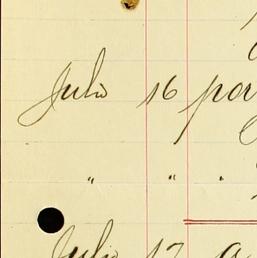 Julio 16 por
" " "
Julio 17 a